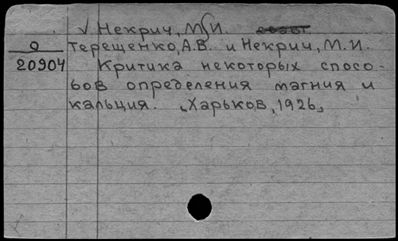 √ Некрич, М.И.
О Терещенко, А.В. и Некрич, М.И.
20904 Критика некоторых спосо-
бов определения магния и
кальция. „Харьков, 1926„